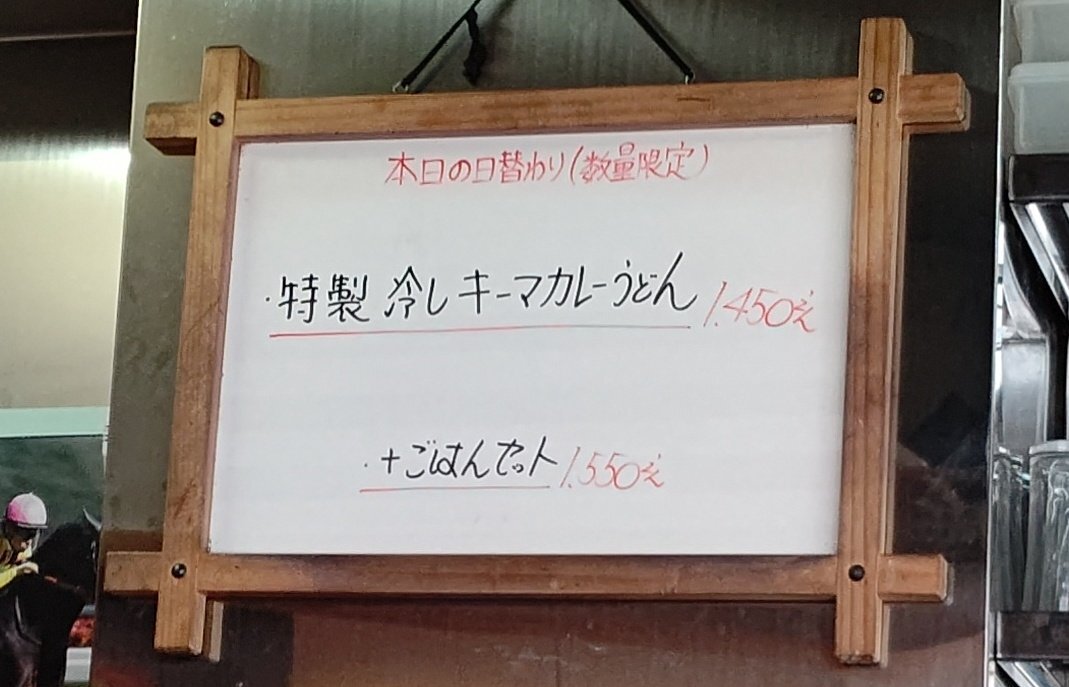 本日の日替わり(数量限定)
・特製 冷しキーマカレーうどん 1.450え
・+ごはんセット 1.550え